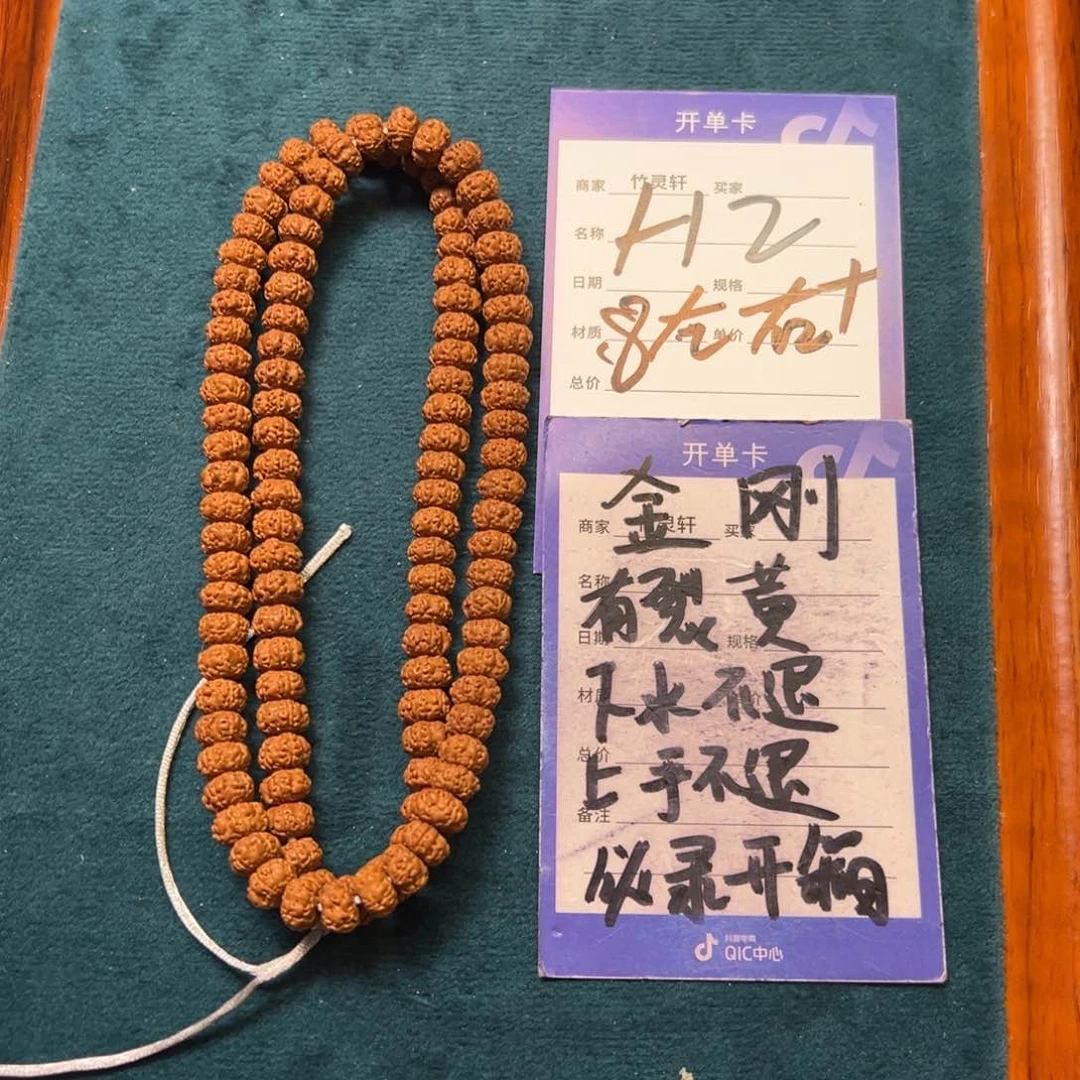 开单卡
商家 竹灵轩 买家
H2
名称
日期 规格
8左右+
材质 单价
总价
开单卡
金刚
商家 竹灵轩 买家
名称
有裂黄
日期 规格
下水不退
材质
总价
上手不退
备注
必录开箱
抖音电商
QIC中心